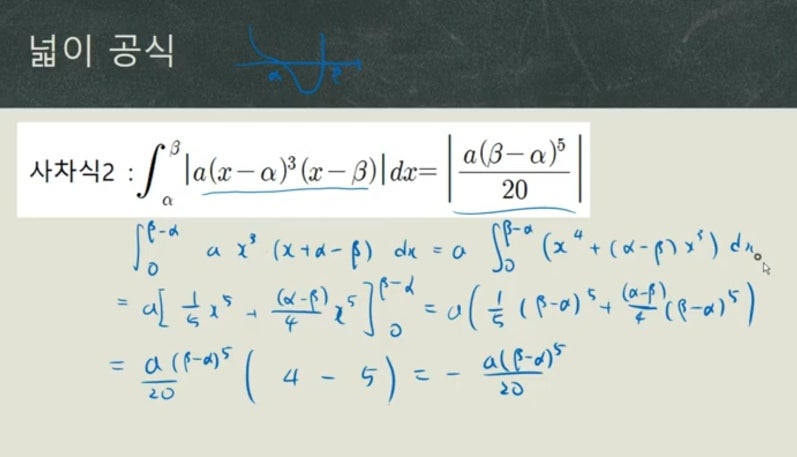 넓이 공식
α β
사차식2 : ∫_α^β |a(x−α)³(x−β)|dx= |a(β−α)⁵/20|
∫_0^{β-α} a x³ (x+α-β) dx = a ∫_0^{β-α} (x⁴+(α-β)x³) dx
= a[ 1/5 x⁵ + (α-β)/4 x⁵ ]_0^{β-α} = a( 1/5 (β-α)⁵ + (α-β)/4 (β-α)⁵ )
= a(β-α)⁵/20 ( 4 - 5 ) = - a(β-α)⁵/20